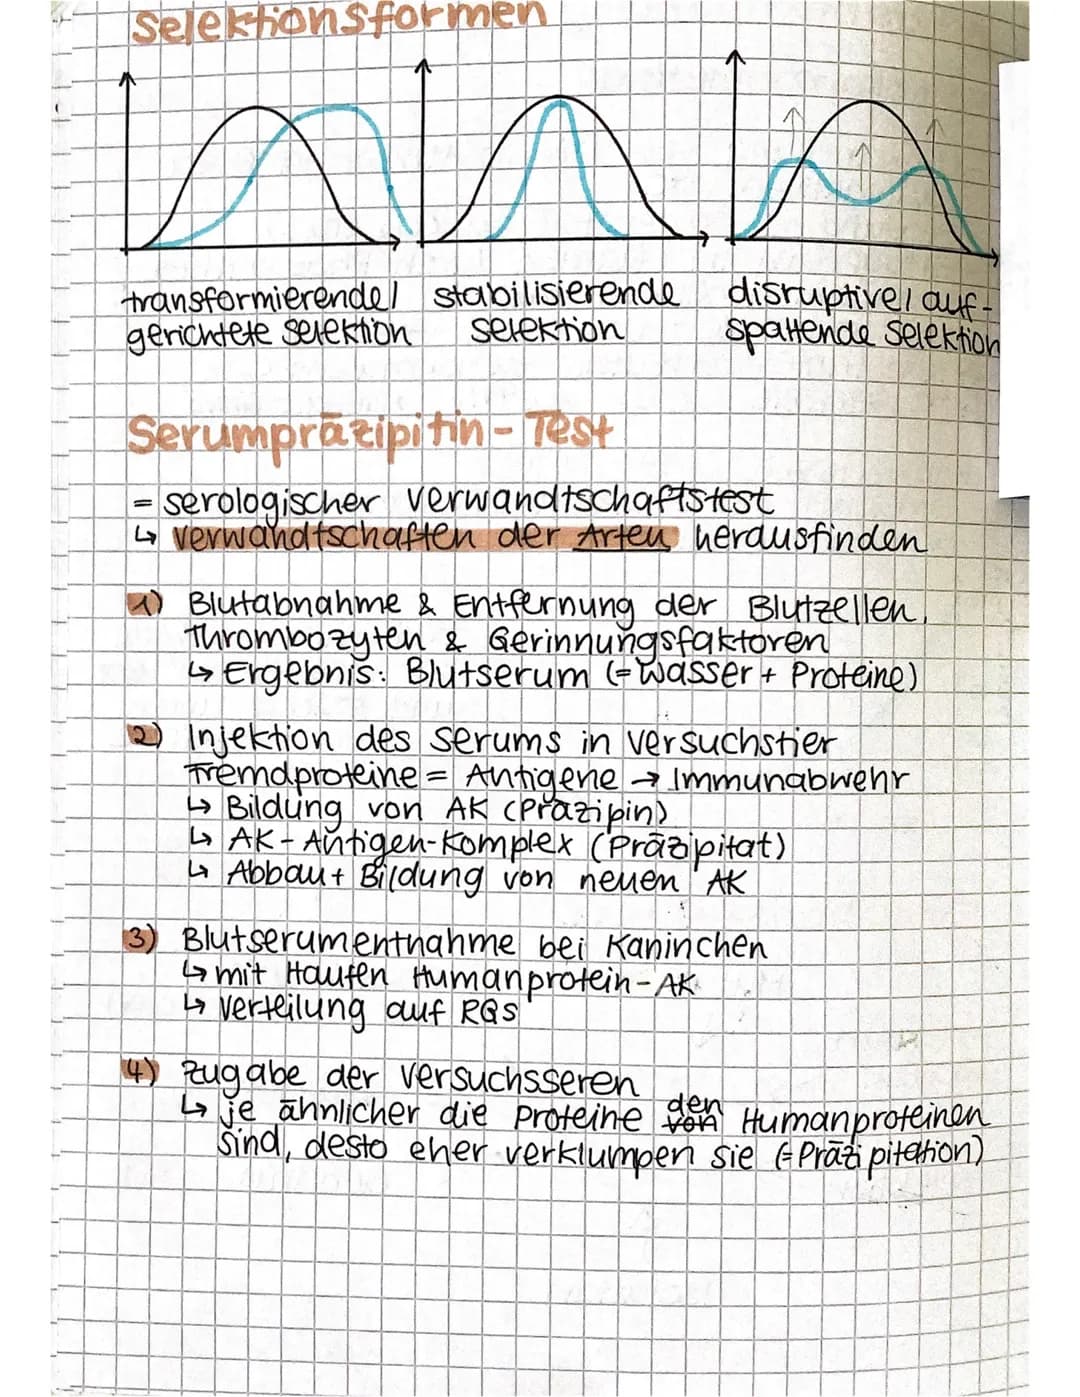 Selektionsformen
transformierende/ stabilisierende disruptive/ auf-
gerichtete Selektion Selektion spaltende Selektion
Serumpräzipitin - Test
= serologischer Verwandtschaftstest
↳ Verwandtschaften der Arten herausfinden
1) Blutabnahme & Entfernung der Blutzellen,
Thrombozyten & Gerinnungsfaktoren
↳ Ergebnis: Blutserum (= Wasser + Proteine)
2) Injektion des Serums in Versuchstier
Fremdproteine = Antigene → Immunabwehr
↳ Bildung von AK (Präzipin)
↳ AK - Antigen-Komplex (Präzipitat)
↳ Abbau + Bildung von neuen AK
3) Blutserumentnahme bei Kaninchen
↳ mit Haufen Humanprotein - AK
↳ Verteilung auf RGs
4) Zugabe der Versuchsseren
↳ je ähnlicher die Proteine den Humanproteinen
sind, desto eher verklumpen sie (= Präzipitation)